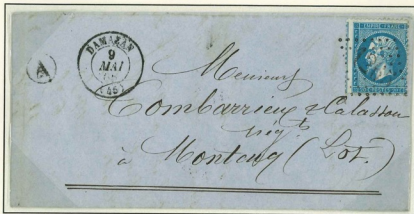 DAMAZAN
9
MAI
(46)
A
EMPIRE FRANC
Messieurs
Combarrieu & Calassou
négts
à Montcuq (Lot.)